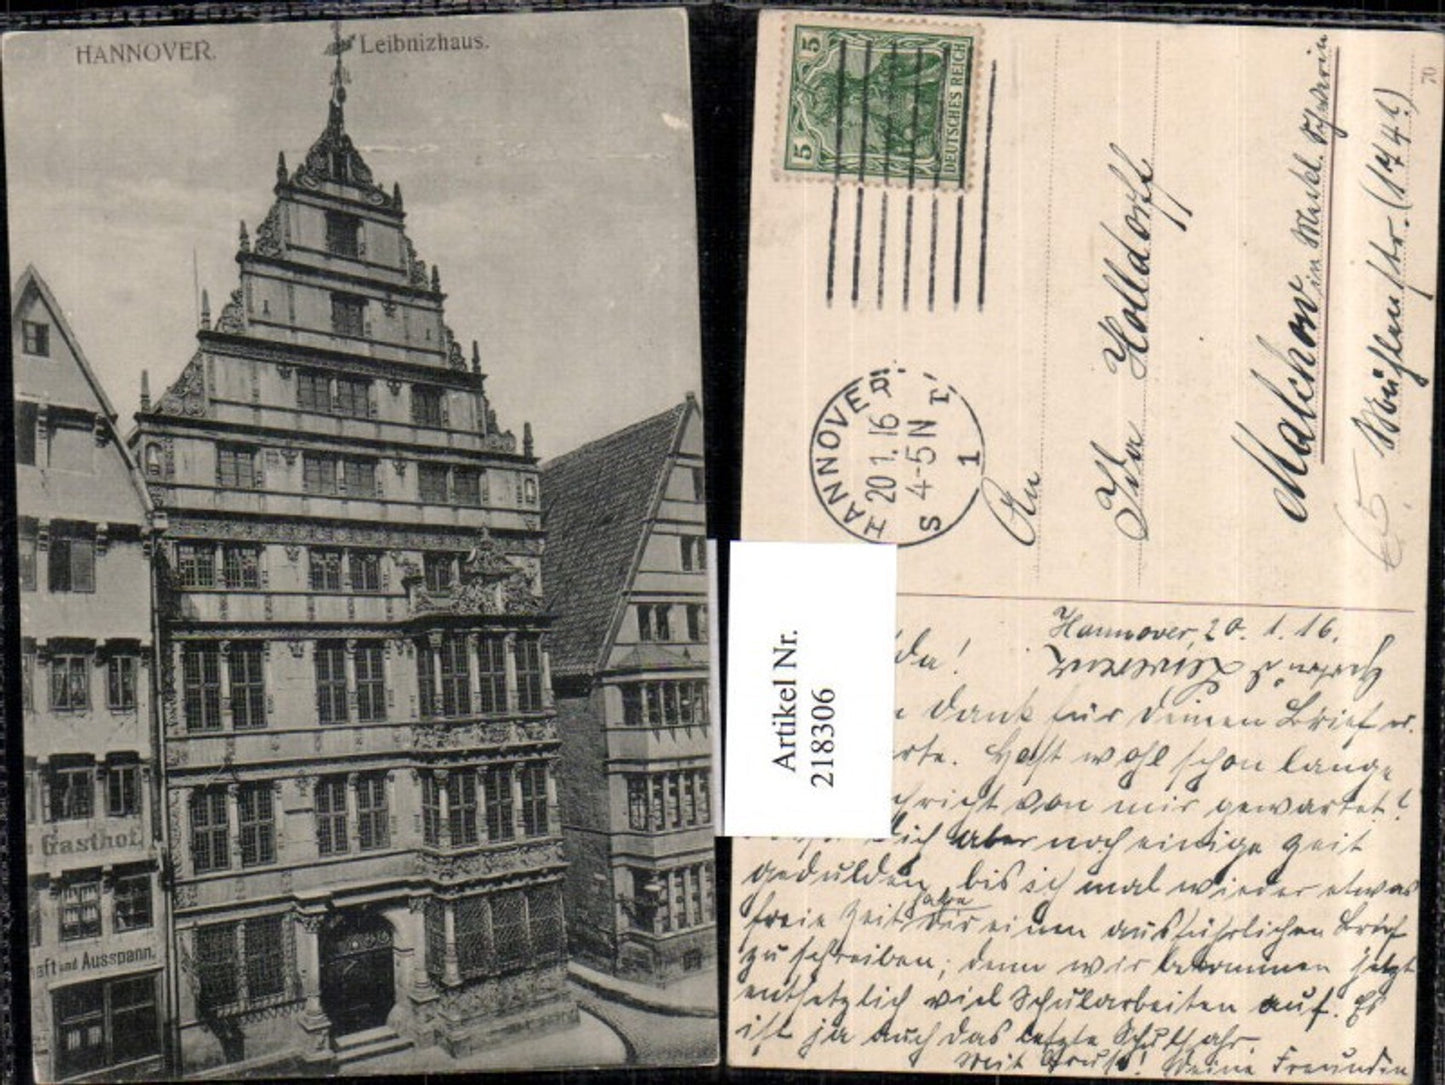 HANNOVER.
Leibnizhaus.
Gasthof
und Ausspann.
5
5
DEUTSCHES REICH
HANNOVER
20.1.16
4-5N
S 1 r
70
An
Holldorff
Malchow in Meckl. Schwerin
Artikel Nr.
218306
Hannover, 20. 1. 16.
da!
Dank für Deinen Brief u.
rte. Hast wohl schon lange
chricht von mir gewartet?
Dich aber noch einige Zeit
gedulden, bis ich mal wieder etwas
freie Zeit habe Dir einen ausführlichen Brief
zu schreiben; denn wir bekommen jetzt
entsetzlich viel Schularbeiten auf. Es
ist ja auch das letzte Schuljahr.
Mit Gruß! Deine Freundin